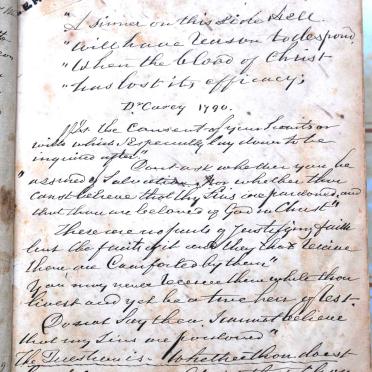 "A sinner on this side Hell
"Will have reason to despond,
"When the blood of Christ
"has lost its efficacy;
Dr Carey 1790.
"Tis the consent of your hearts or
wills which I especially lay down to be
inquired after."
Dont ask whether you be
"assured of Salvation, nor whether thou
canst believe that thy Sins are pardoned, and
that thou are beloved of God in Christ"
These are no parts of Justifying faith
but the fruits of it and they that receive
them are Comforted by them"
You may never receive them while thou
livest and yet be a true heir of rest.
Do not Say then. I cannot believe
that my Sins are pardoned"
The Question is. Whether thou doest